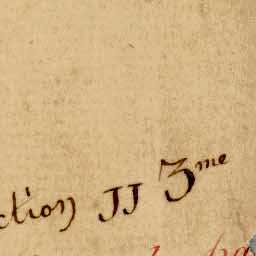 ction JJ 3me